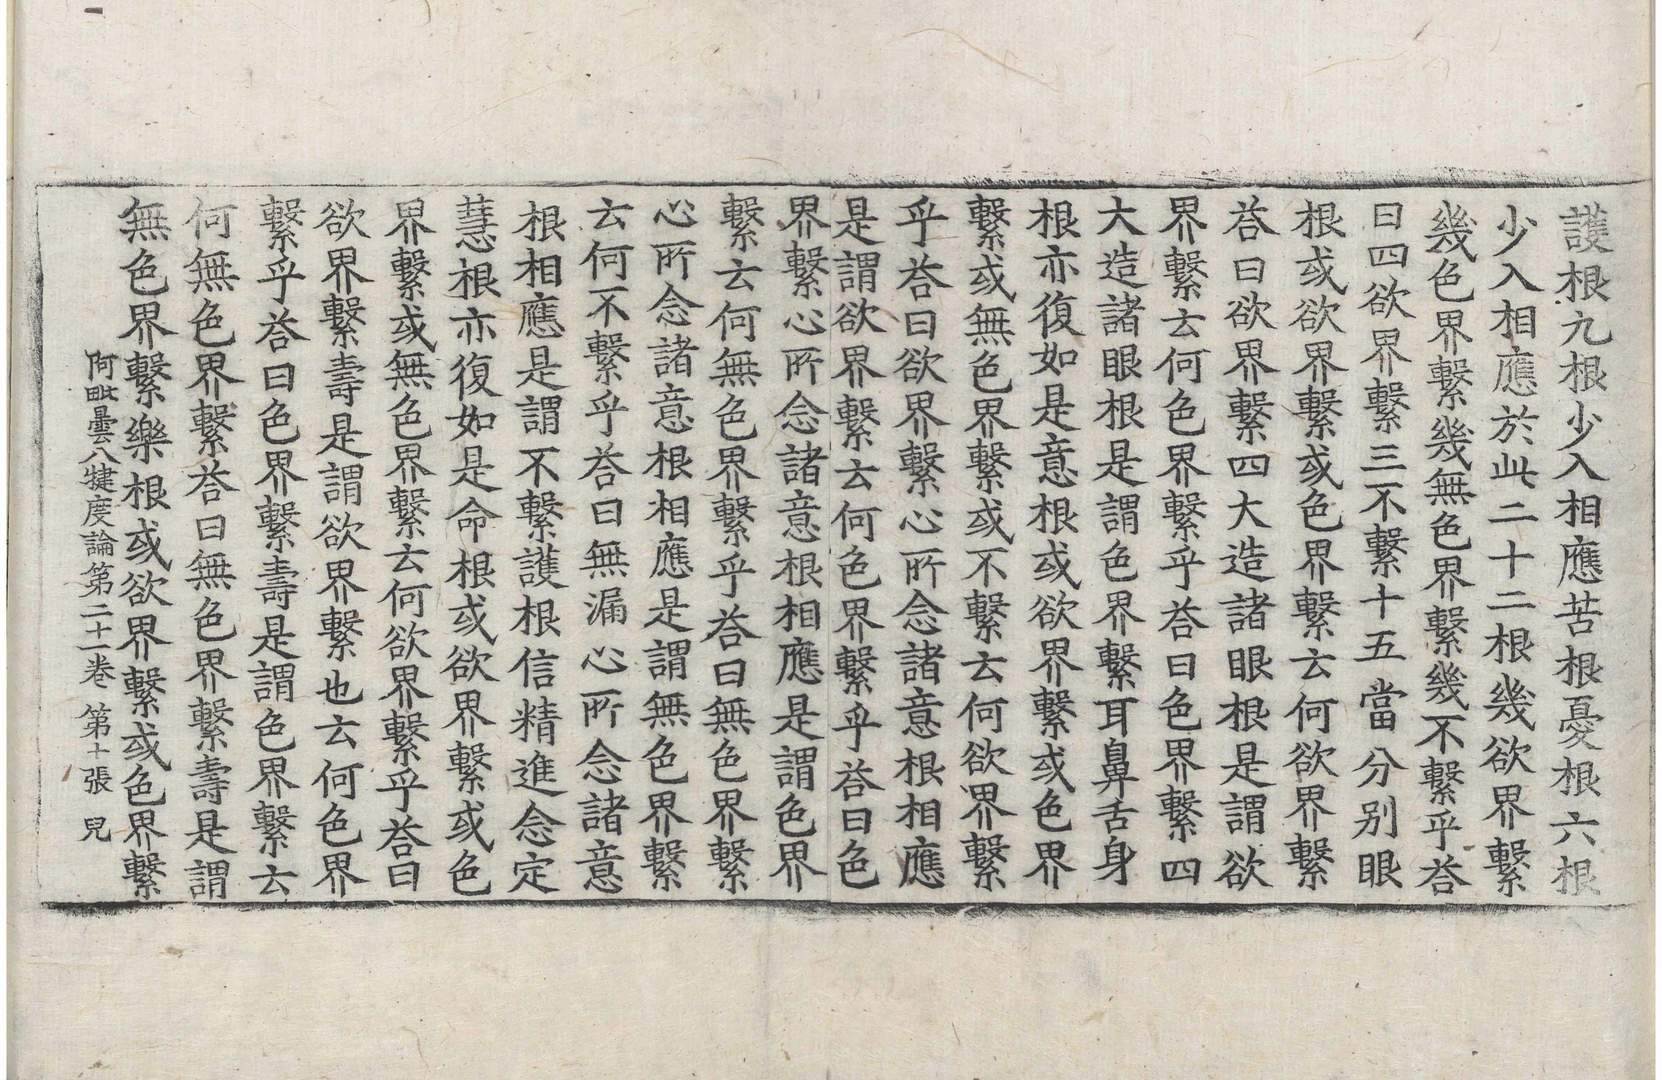 護根九根少入相應苦根憂根六根
少入相應於此二十二根幾欲界繫
幾色界繫幾無色界繫幾不繫乎荅
曰四欲界繫三不繫十五當分别眼
根或欲界繫或色界繫云何欲界繫
荅曰欲界繫四大造諸眼根是謂欲
界繫云何色界繫乎荅曰色界繫四
大造諸眼根是謂色界繫耳鼻舌身
根亦復如是意根或欲界繫或色界
繫或無色界繫或不繫云何欲界繫
乎荅曰欲界繫心所念諸意根相應
是謂欲界繫云何色界繫乎荅曰色
界繫心所念諸意根相應是謂色界
繫云何無色界繫乎荅曰無色界繫
心所念諸意根相應是謂無色界繫
云何不繫乎荅曰無漏心所念諸意
根相應是謂不繫護根信精進念定
慧根亦復如是命根或欲界繫或色
界繫或無色界繫云何欲界繫乎荅曰
欲界繫壽是謂欲界繫也云何色界
繫乎荅曰色界繫壽是謂色界繫云
何無色界繫荅曰無色界繫壽是謂
無色界繫樂根或欲界繫或色界繫
阿毗曇八犍度論第二十一卷 第十張 兒